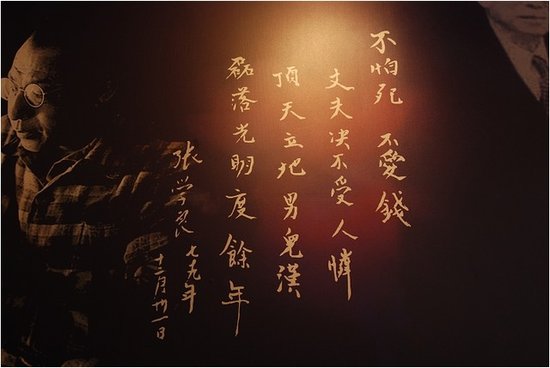 不怕死 不愛錢
丈夫决不受人憐
頂天立地男兒漢
磊落光明度餘年
张学良
七九年
十二月卅一日